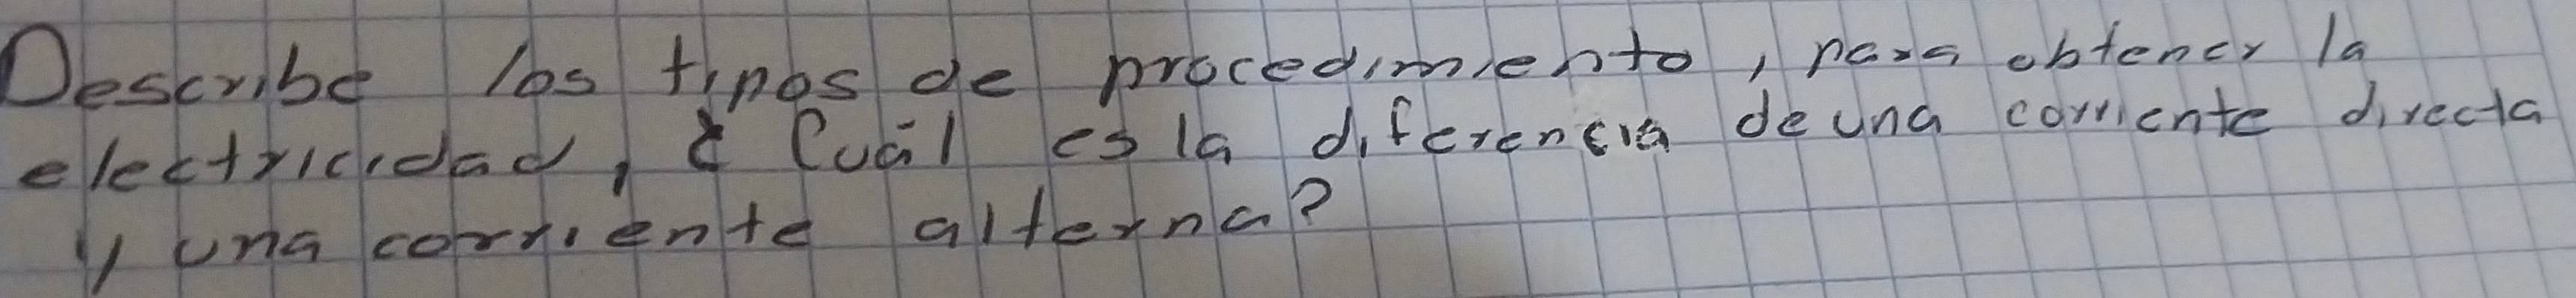 Describe los tipos de procedimiento, para obtener la
electricidad, ¿ Cuál es la diferencia de una corriente directa
y una corriente alterna?